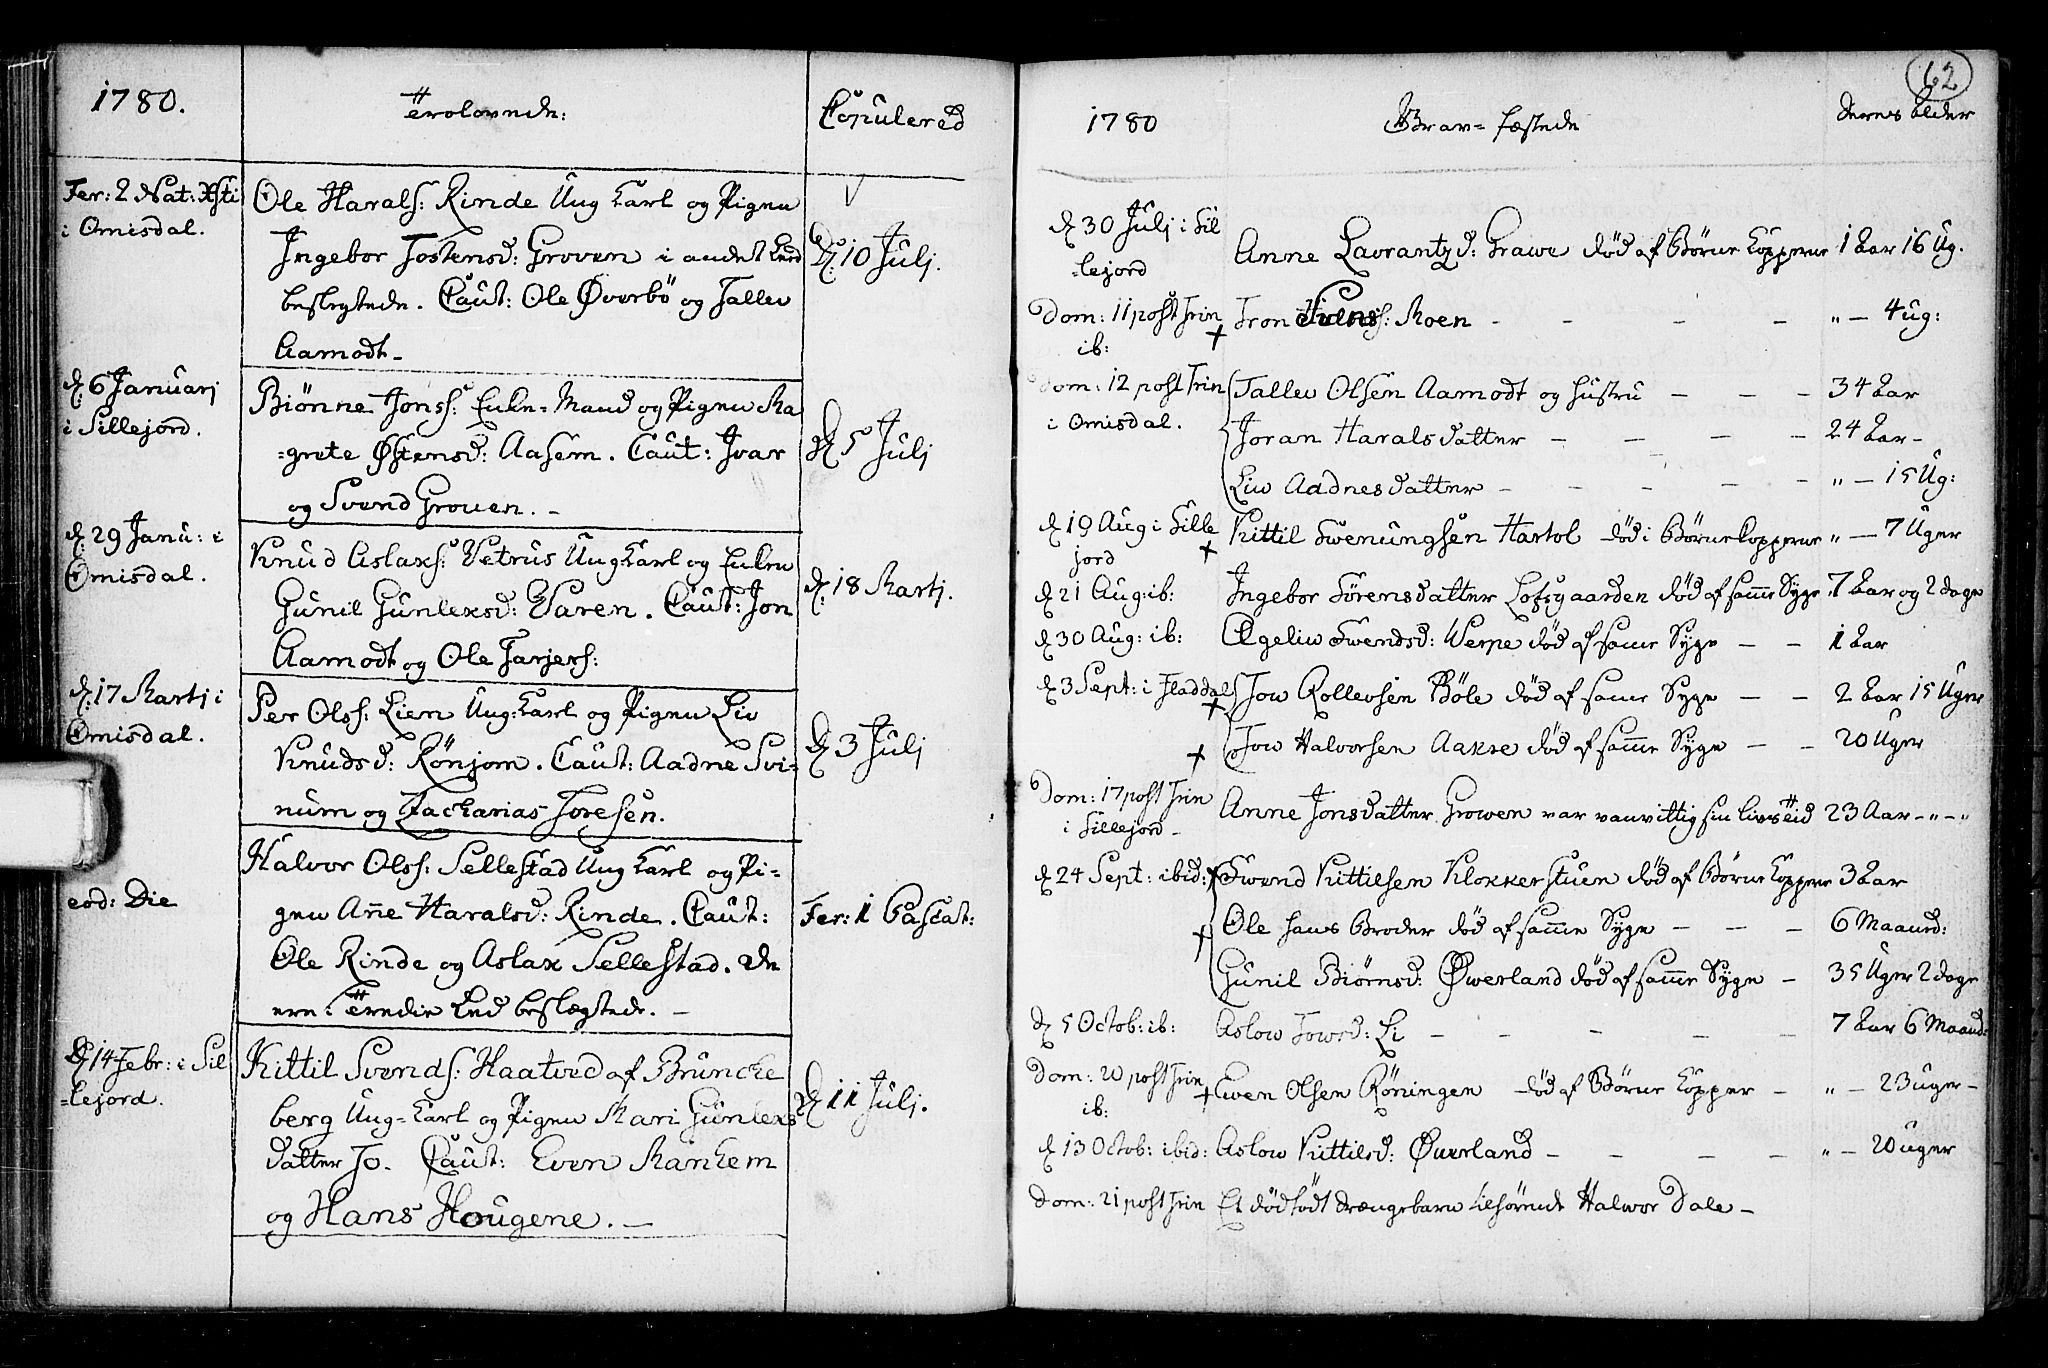 1780.
Trolovede:
Copulered
Fer: 2 Nat: Xsti
i Omisdal.
Ole Harals: Rinde Ung Karl og Pigen
Ingebor Jostensd: Groven i andet Leed
beslegtede. Caut: Ole Øverbö og Tallev
Aamodt –
d: 10 Julj.
d: 6 Januarj
i Sillejord.
Biönne Jonss: Enke-Mand og Pigen Ma
=grete Østensd: Aasem. Caut: Ivar
og Svend Groven. –
d: 5 Julj
d: 29 Janu: i
Omisdal.
Knud Aslaks: Vetrus Ung Karl og Enken
Gunil Gunleksd: Varen. Caut: Jon
Aamodt og Ole Tarjers:
d: 18 Martj.
d: 17 Martj i
Omisdal.
Per Olss: Lien Ung-Karl og Pigen Liv
Knudsd: Rönjom. Caut: Aadne Svi-
num og Zacharias Toresen.
d: 3 Julj
eod: Die
Halvor Olss: Sellestad Ung Karl og Pi-
gen Anne Haralsd: Rinde. Caut:
Ole Rinde og Aslak Sellestad. De
ere i Tredie Led beslægtede. –
Fer: 1 Pascat:
d: 14 Febr: i Sil
=lejord.
Kittil Svends: Haatved af Bruncke
berg Ung-Karl og Pigen Mari Gunleks
datter Jo. Caut: Even Mankem
og Hans Hougene. –
d: 11 Julj.
62
1780
Grav-fæstede
deres Alder
d: 30 Julj i Sil
=lejord
Anne Lavrantzd: Grawe död af Börne Kopperne 1 Aar 16 Ug.
Dom: 11 post Trin
ib:
+ Tron Svens: Moen – – – – „ – 4 ug:
Dom: 12 post Trin
i Omisdal.
Tallev Olsen Aamodt og Hustru – – – 34 Aar
Joran Haralsdatter – – – – 24 Aar –
Liv Aadnesdatter – – – – – „ – 15 Ug:
d: 19 Aug i Sille
jord
+ Kittil Swenungsen Hartol död i Börnekopperne „ – 7 Uger
d: 21 Aug: ib: Ingebor Sörensdatter Lofsgaarden död af samme Syge. 7 Aar og 2 dage
d: 30 Aug: ib: Ægeliw Swendsd: Verpe död af samme Syge – – 1 Aar
d: 3 Sept: i Fladdal + Jow Rollevsen Böle död af samme Syge – – 2 Aar 15 Uger
+ Tow Halvorsen Aakre död af samme Syge – – 20 Uger
Dom: 17 post Trin
i Sillejord –
Anne Jonsdatter Growen var vanvittig sin Livs Tid 23 Aar – „ – „
d: 24 Sept: ibid: + Swend Kittilsen Klokkerstuen död af Börne Kopper 3 Aar
+ Ole hans Broder död af samme Syge – – – 6 Maaned:
Gunil Biörnsd: Øwerland död af samme Syge – 35 Uger 2 dage
d: 5 Octob: ib: Aslow Towsd: Li – – – – – 7 Aar 6 Maaned:
Dom: 20 post Trin
ib:
+ Ewen Olsen Röningen död af Börne Kopper – „ – 23 uger –
d: 13 Octob: ibid: Aslow Kittilsd: Øverland – – – – „ – 20 uger
Dom: 21 post Trin Et dödfödt drængebarn tilhörende Halwor Dale –